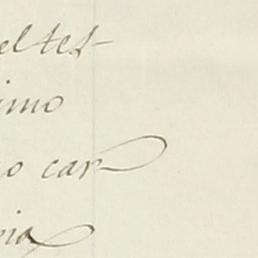 el tes-
imo
o car-
oia